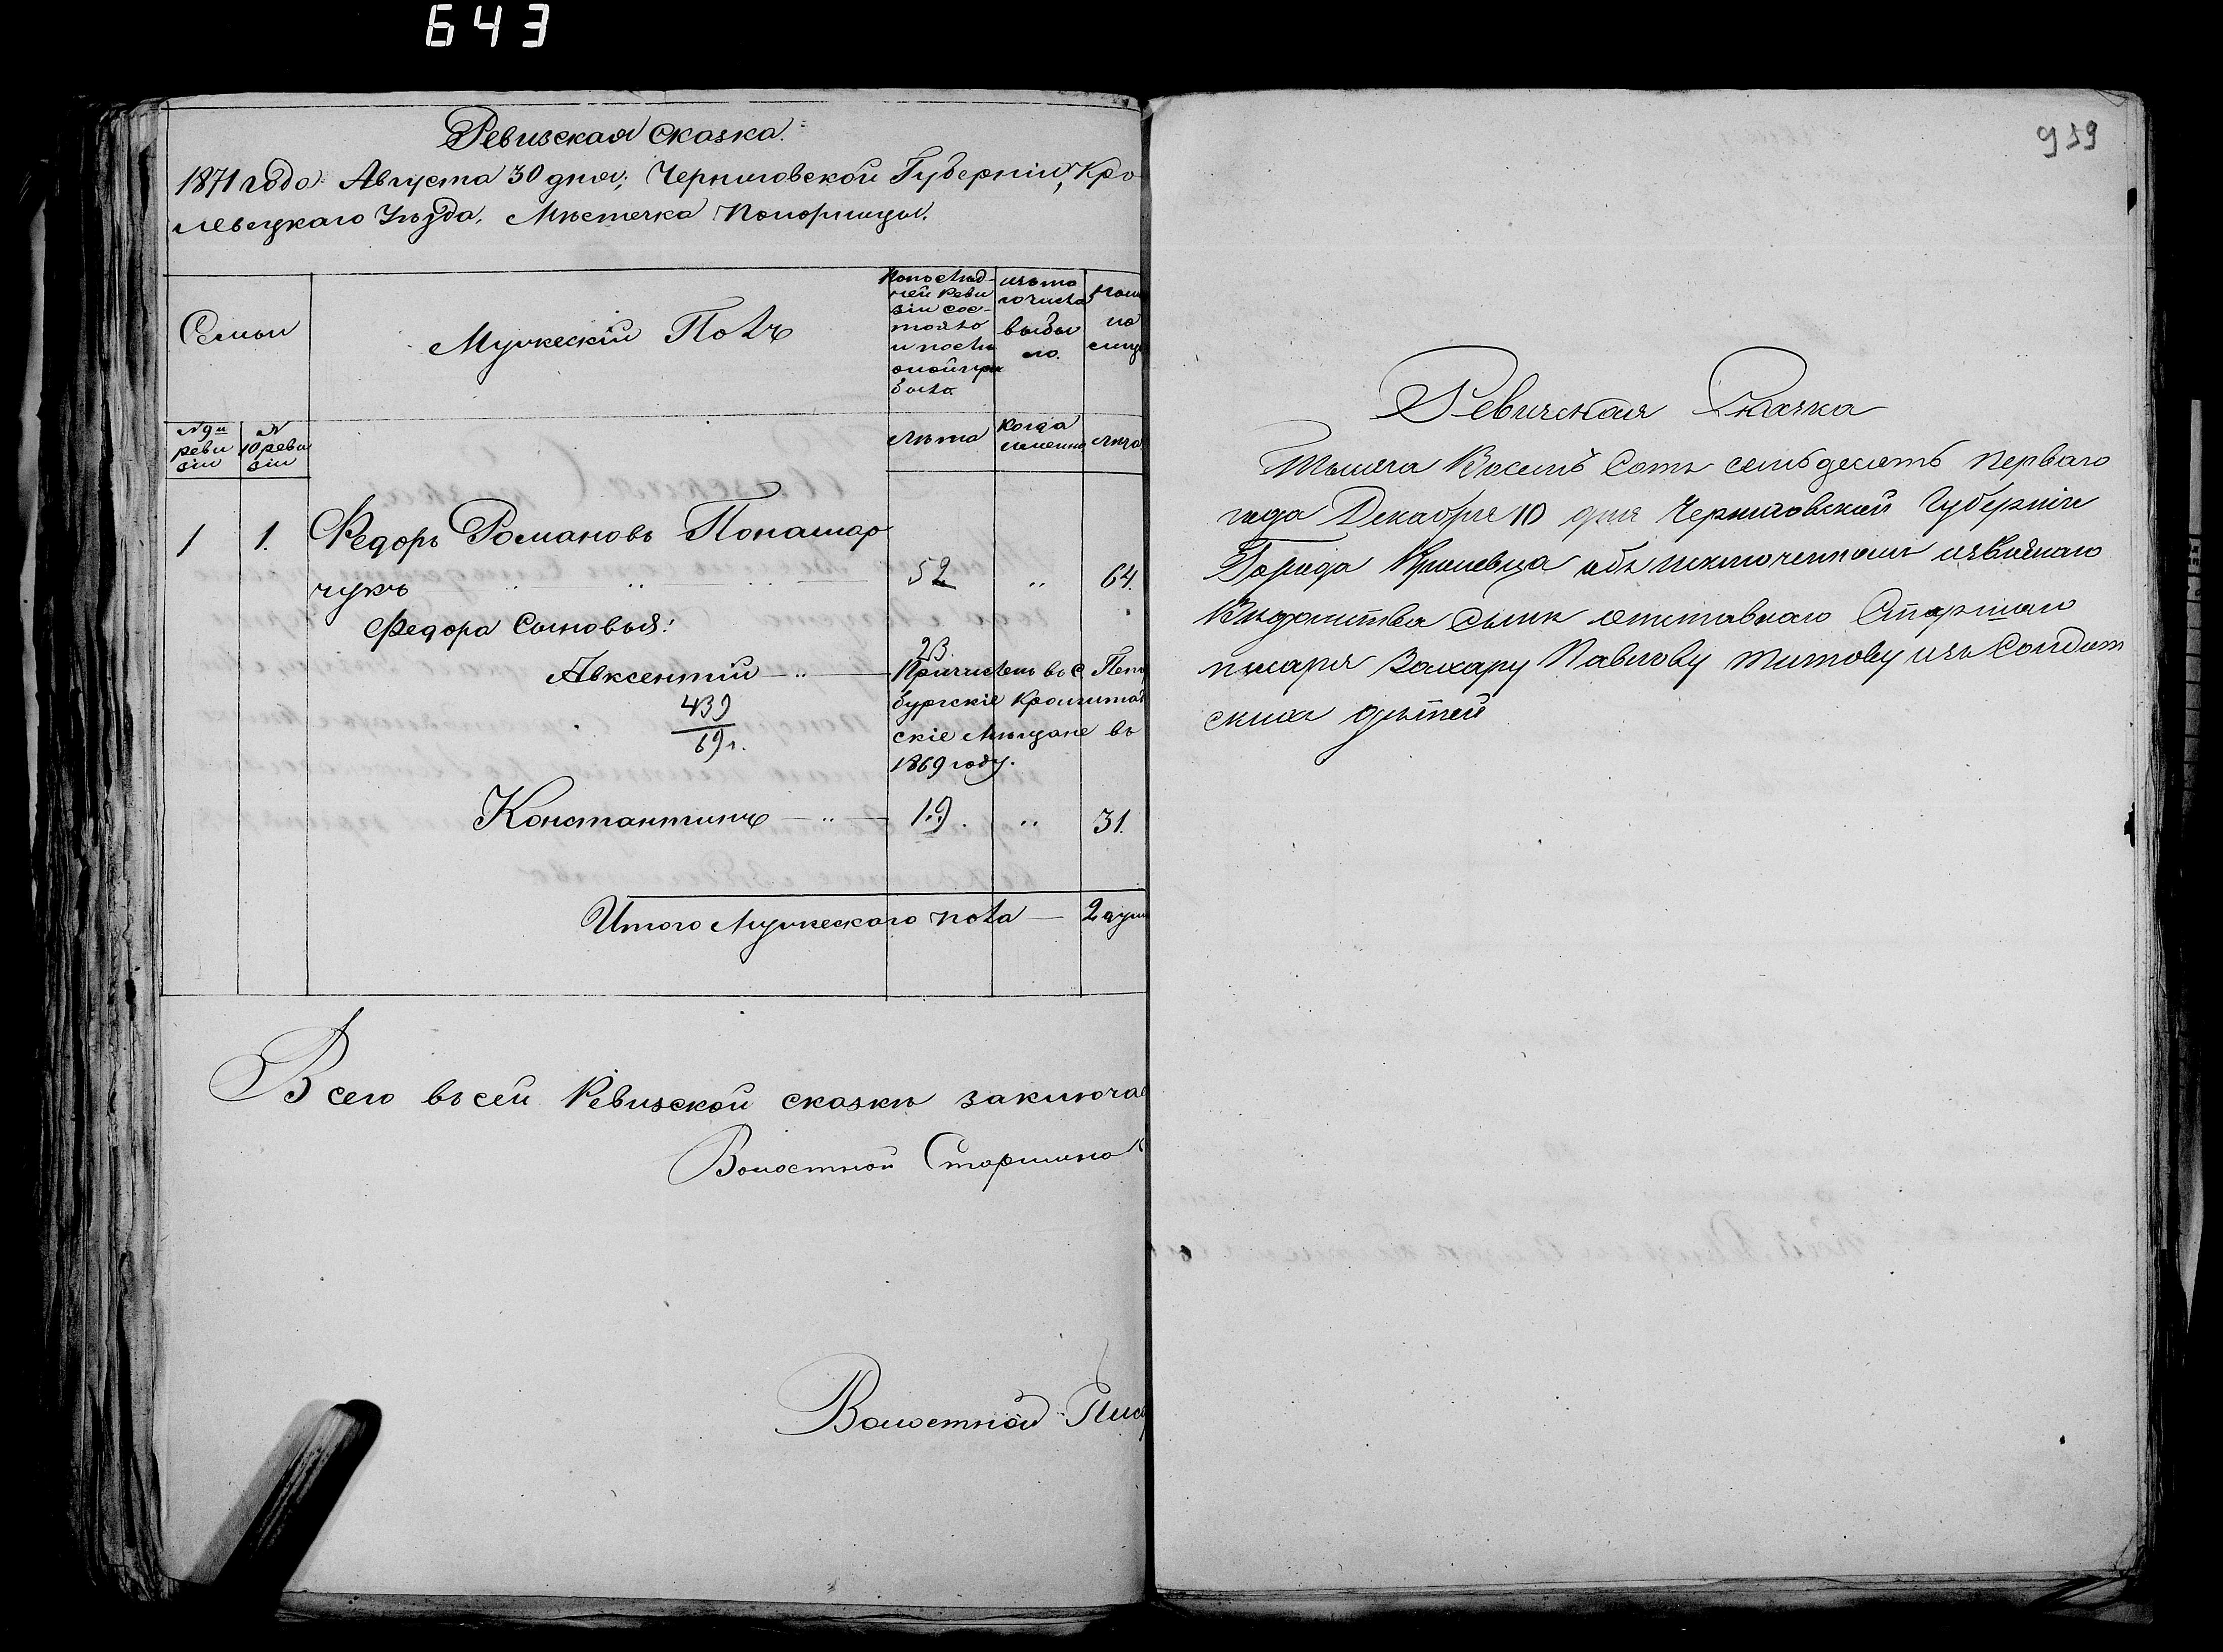 643
Ревизская Сказка.
1871 года Августа 30 дня, Черниговской Губерніи, Кро
левецкаго Уѣзда, Мѣстечка Понорницы.
Семьи
Мужескій Полъ
По послѣд-
ней реви
зіи сос-
тояло
и послѣ
оной при
было
изъ то
го числа
выбы
ло.
Ныне
на
лицо
№ 9й
реви
зіи
№
10 реви
зіи
лѣта
когда
именно
лѣта
1 1. Федоръ Романовъ Понамар
чукъ 52 " 64.
Федора Сыновья:
Авксентій 23.
Причисленъ въ С. Петер
бургскіе Кронштад
скіе Мѣщане въ
1869 году.
439
69 г.
Константинъ 19. " 31.
Итого Мужескаго пола — 2 души
Всего въ сей Ревизской сказкѣ заключае
Волостной Старшина
Волостной Писар
939
Ревизская Сказка
Тысяча Восемь Сотъ семьдесятъ перваго
года Декабря 10 дня Черниговской Губерніи
Города Кролевца объ исключенномъ изъ
Вѣдомства сынѣ отставнаго Старшаго
писаря Захару Павлову Титову изъ Солдат
скихъ дѣтей